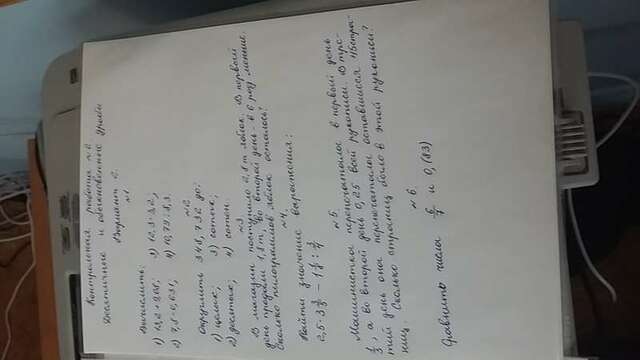 Контрольная работа №
Десятичные и обыкновенные дроби
Вариант 2.
№1
Вычислить:
1) 3)
2) 4)
№2
Округлить 348,732 до:
1) целых; 3) сотых;
2) десятых; 4) сотен.
№3
В магазин поступило 2,8 т яблок. В первый
день продали 1,8 т, во второй день - в 6 раз меньше.
Сколько килограммов яблок осталось?
№4
Найти значение выражения:
№5
Машинистка перепечатала в первый день
, а во второй день 0,25 всей рукописи. В тре-
тий день она перепечатала оставшиеся стра-
ниц. Сколько страниц было в этой рукописи?
№6
Сравнить числа и 0,(83)